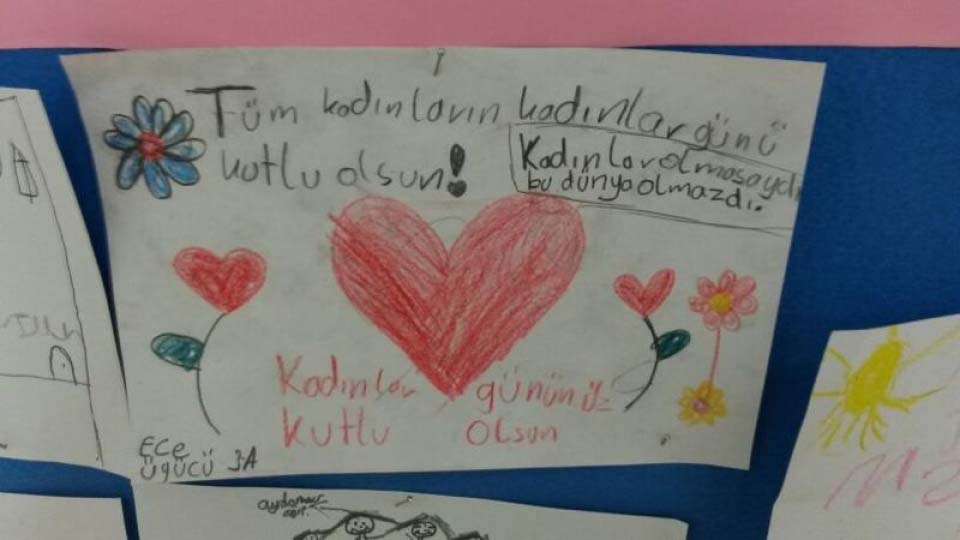 Tüm kadınların kadınlar günü
kutlu olsun!
Kadınlar olmasaydı
bu dünya olmazdı.
Kadınlar gününüz
Kutlu Olsun
Ece
Üğücü 3-A